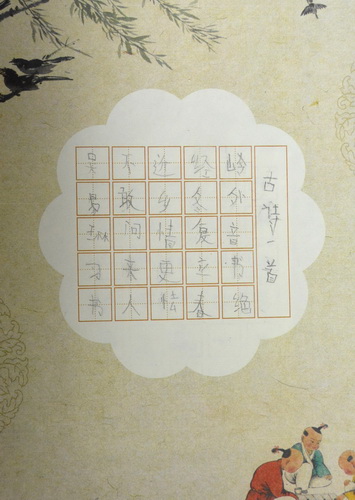 古诗一首
岭外音书绝
经冬复春
近乡情更怯
不敢问来人
吴习